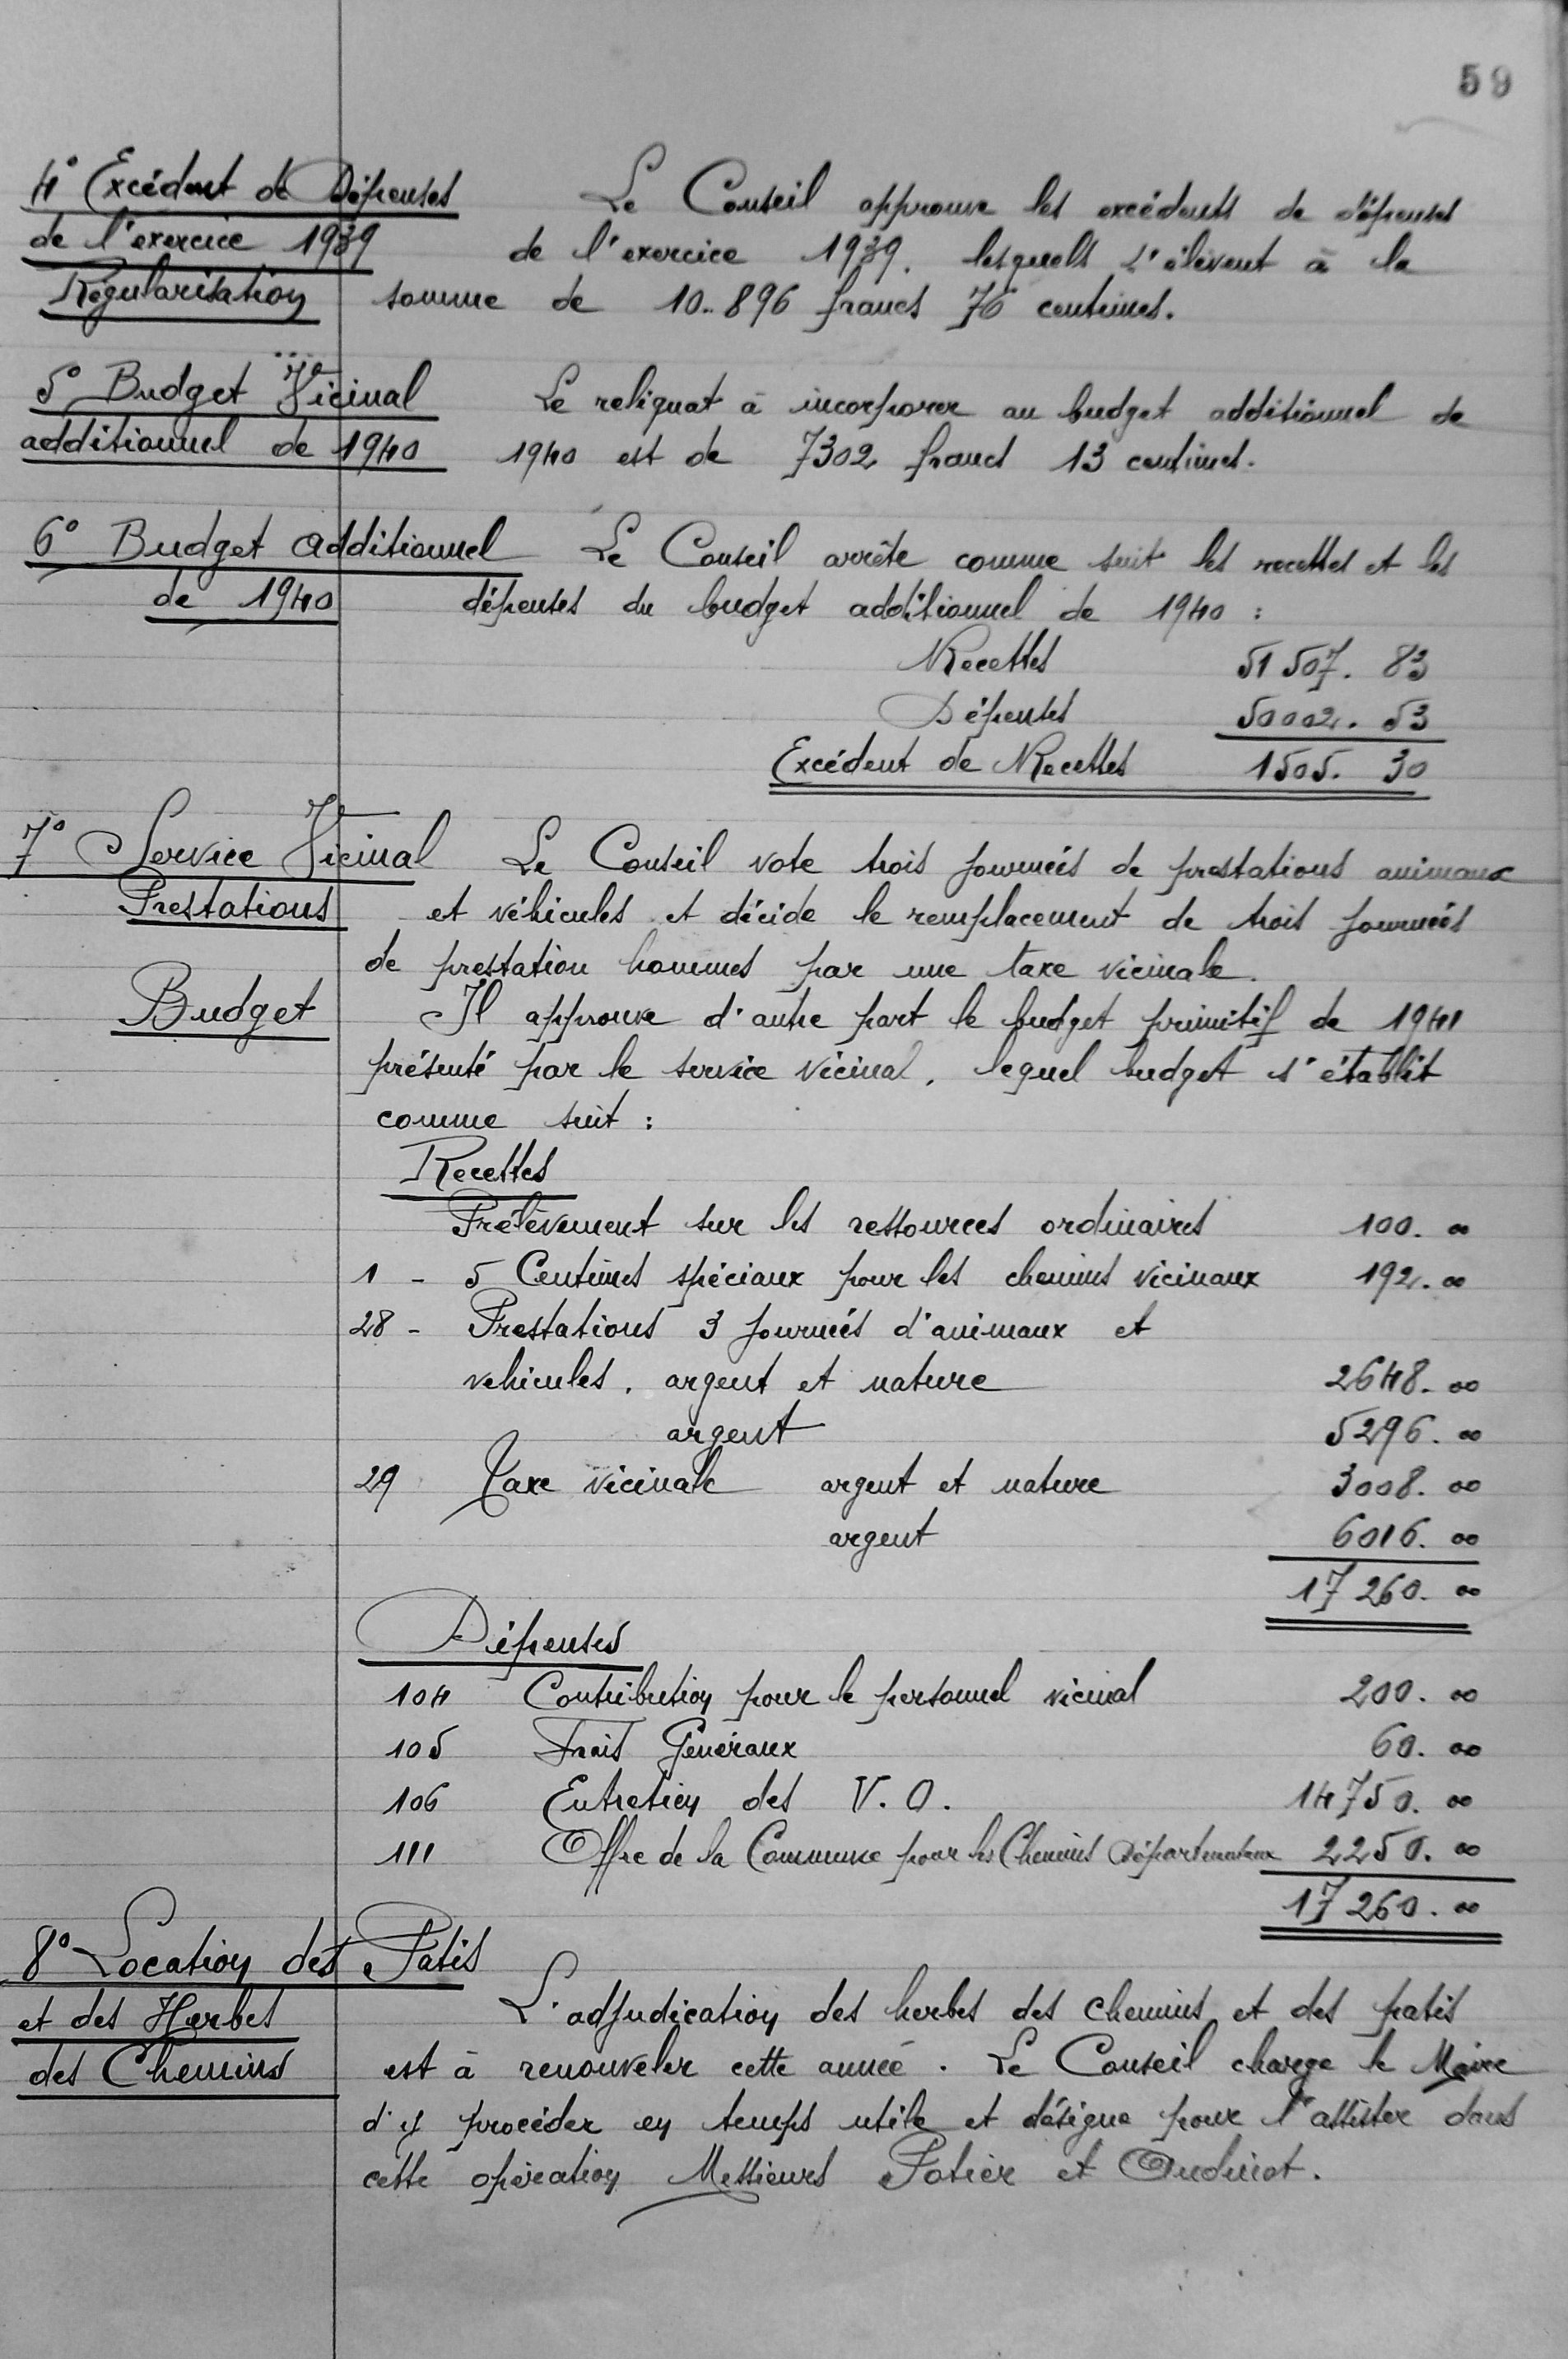 59
4° Excédent de Dépenses
de l'exercice 1939
Régularisation
Le Conseil approuve les excédents de dépenses
de l'exercice 1939. lesquels s'élèvent à la
somme de 10.896 francs 76 centimes.
5° Budget Vicinal
additionnel de 1940
Le reliquat à incorporer au budget additionnel de
1940 est de 7302 francs 13 centimes.
6° Budget additionnel
de 1940
Le Conseil arrête comme suit les recettes et les
dépenses du budget additionnel de 1940 :
Recettes 51 507. 83
Dépenses 50002. 53
Excédent de Recettes 1505. 30
7° Service Vicinal
Prestations
Le Conseil vote trois journées de prestations animaux
et véhicules et décide le remplacement de trois journées
de prestation hommes par une taxe vicinale.
Budget
Il approuve d'autre part le budget primitif de 1941
présenté par le service vicinal, lequel budget s'établit
comme suit :
Recettes
Prélèvement sur les ressources ordinaires 100. 00
1 - 5 Centimes spéciaux pour les chemins vicinaux 192. 00
28 - Prestations 3 journées d'animaux et
vehicules. argent et nature 2648. 00
argent 5296. 00
29 Taxe vicinale argent et nature 3008. 00
argent 6016. 00
17 260. 00
Dépenses
104 Contribution pour le personnel vicinal 200. 00
105 Frais Généraux 60. 00
106 Entretien des V.O. 14750. 00
111 Offre de la Commune pour les Chemins Départementaux 2250. 00
17 260. 00
8° Location des Patis
et des Herbes
des Chemins
L'adjudication des herbes des chemins et des patis
est à renouveler cette année. Le Conseil charge le Maire
d'y procéder en temps utile et désigne pour l'assister dans
cette opération Messieurs Potier et Oudinot.